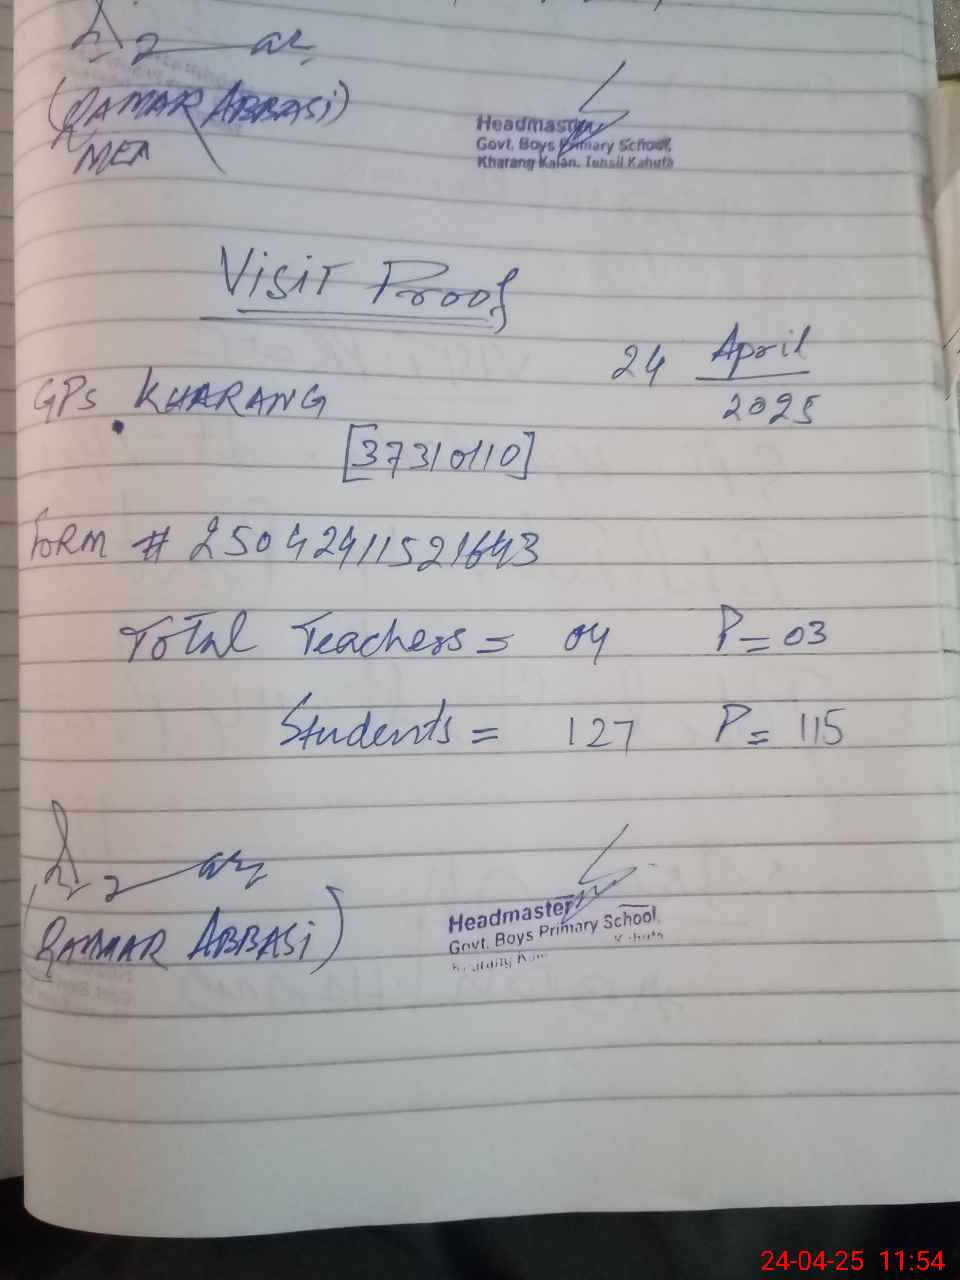 (QAMAR ABBASI)
MEA
Headmaster
Govt. Boys Primary School,
Kharang Kalan, Tehsil Kahuta
Visit Proof
24 April
2025
GPS KHARANG
[37310110]
FORM # 25042411521643
Total Teachers = 04 P = 03
Students = 127 P = 115
(QAMAR ABBASI)
Headmaster
Govt. Boys Primary School,
Kahuta
24-04-25 11:54